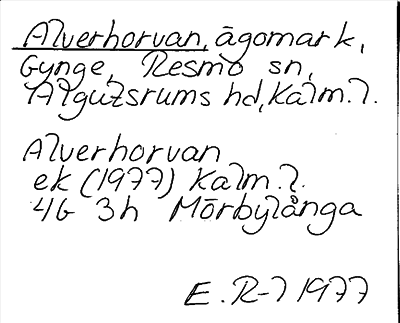 Alverhorvan, āgomark,
Gynge, Resmo sn,
Algutsrums hd, Kalm. l.
Alverhorvan
ek (1977) Kalm. l.
4G 3h Mörbylånga
E. R-l 1977